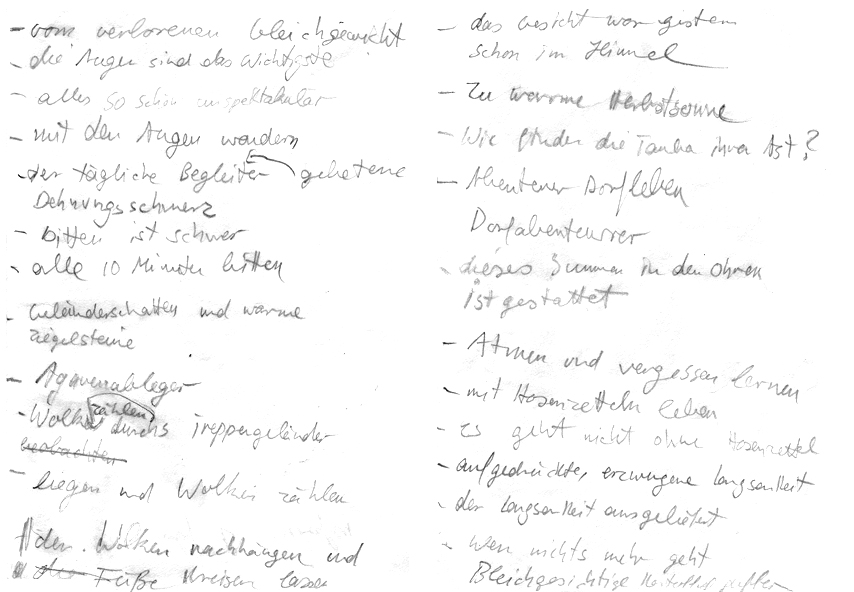 - vom verlorenen Gleichgewicht
- die Augen sind das wichtigste
- alles so schön unspektakulär
- mit den Augen wandern
- der tägliche Begleiter gebetene
Dehnungsschmerz
- bitten ist schwer
- alle 10 Minuten bitten
- Geländerschatten und warme
Ziegelsteine
- Agavenableger
- Wolken zählen durchs Treppengeländer
beobachten
- liegen und Wolken zählen
den Wolken nachhängen und
die Füße kreisen lassen
- das Gesicht war gestern
schon im Himmel
- Zu warme Herbstsonne
- Wie finden die Tauben ihren Ast?
- Abenteuer Dorfleben
Dorfabenteurer
- dieses Summen in den Ohren
ist gestattet
- Atmen und vergessen lernen
- mit Hosenzetteln leben
- es geht nicht ohne Hosenzettel
- aufgedrückte, erzwungene Langsamkeit
- der Langsamkeit ausgeliefert
- wenn nichts mehr geht
Bleichgesichtige